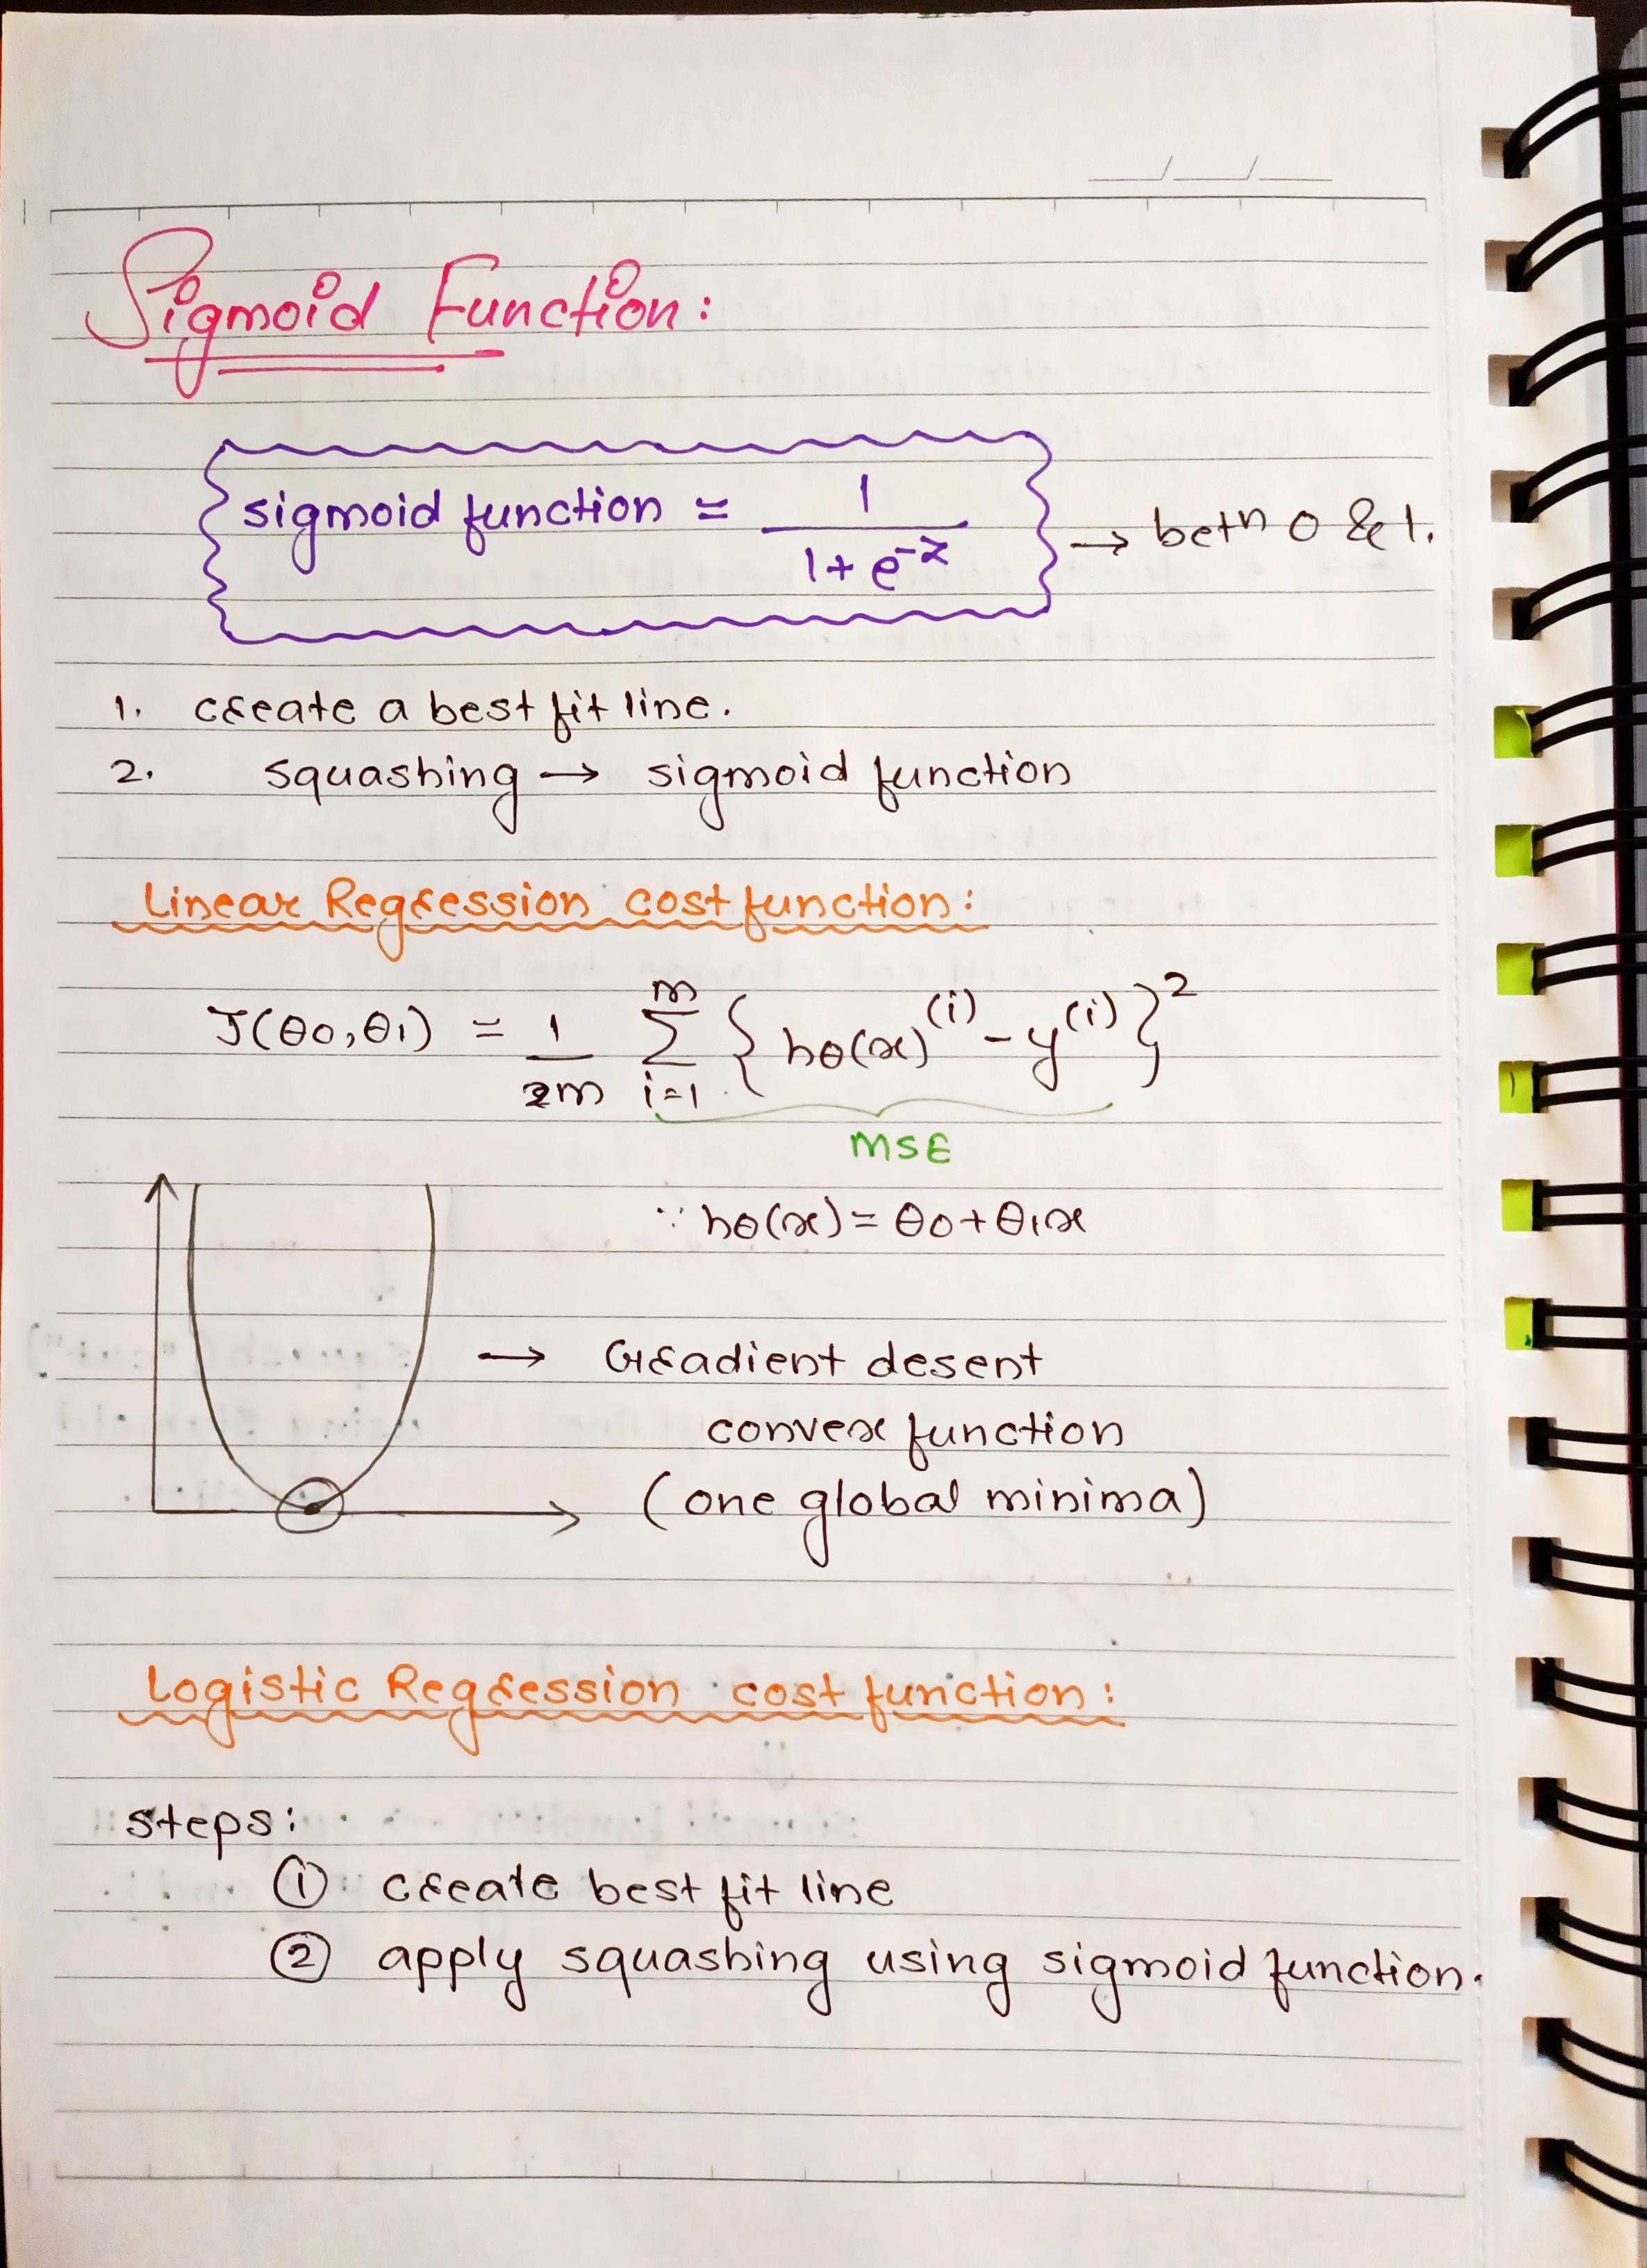 Sigmoid Function:
sigmoid function = 1 / (1 + e^-z) → betn 0 & 1.
1. create a best fit line.
2. squashing → sigmoid function
Linear Regression cost function:
J(θ0, θ1) = 1/2m m Σ i=1 { hθ(x)^(i) - y^(i) }^2
MSE
∵ hθ(x) = θ0 + θ1x
→ Gradient desent
convex function
(one global minima)
Logistic Regression cost function:
steps:
① create best fit line
② apply squashing using sigmoid function.